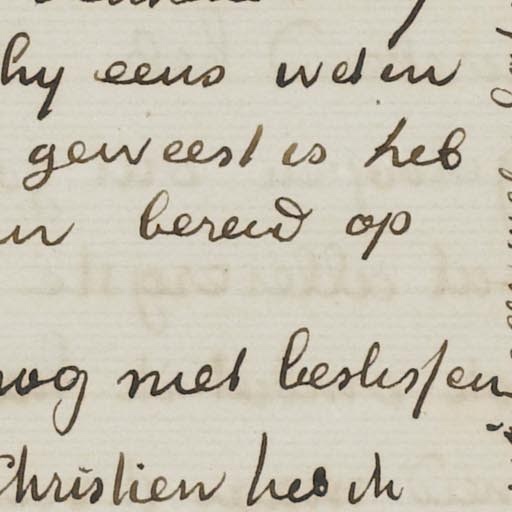 hy eens wel in
geweest is heb
in bereid op
nog niet beslissen
Christien heb ik